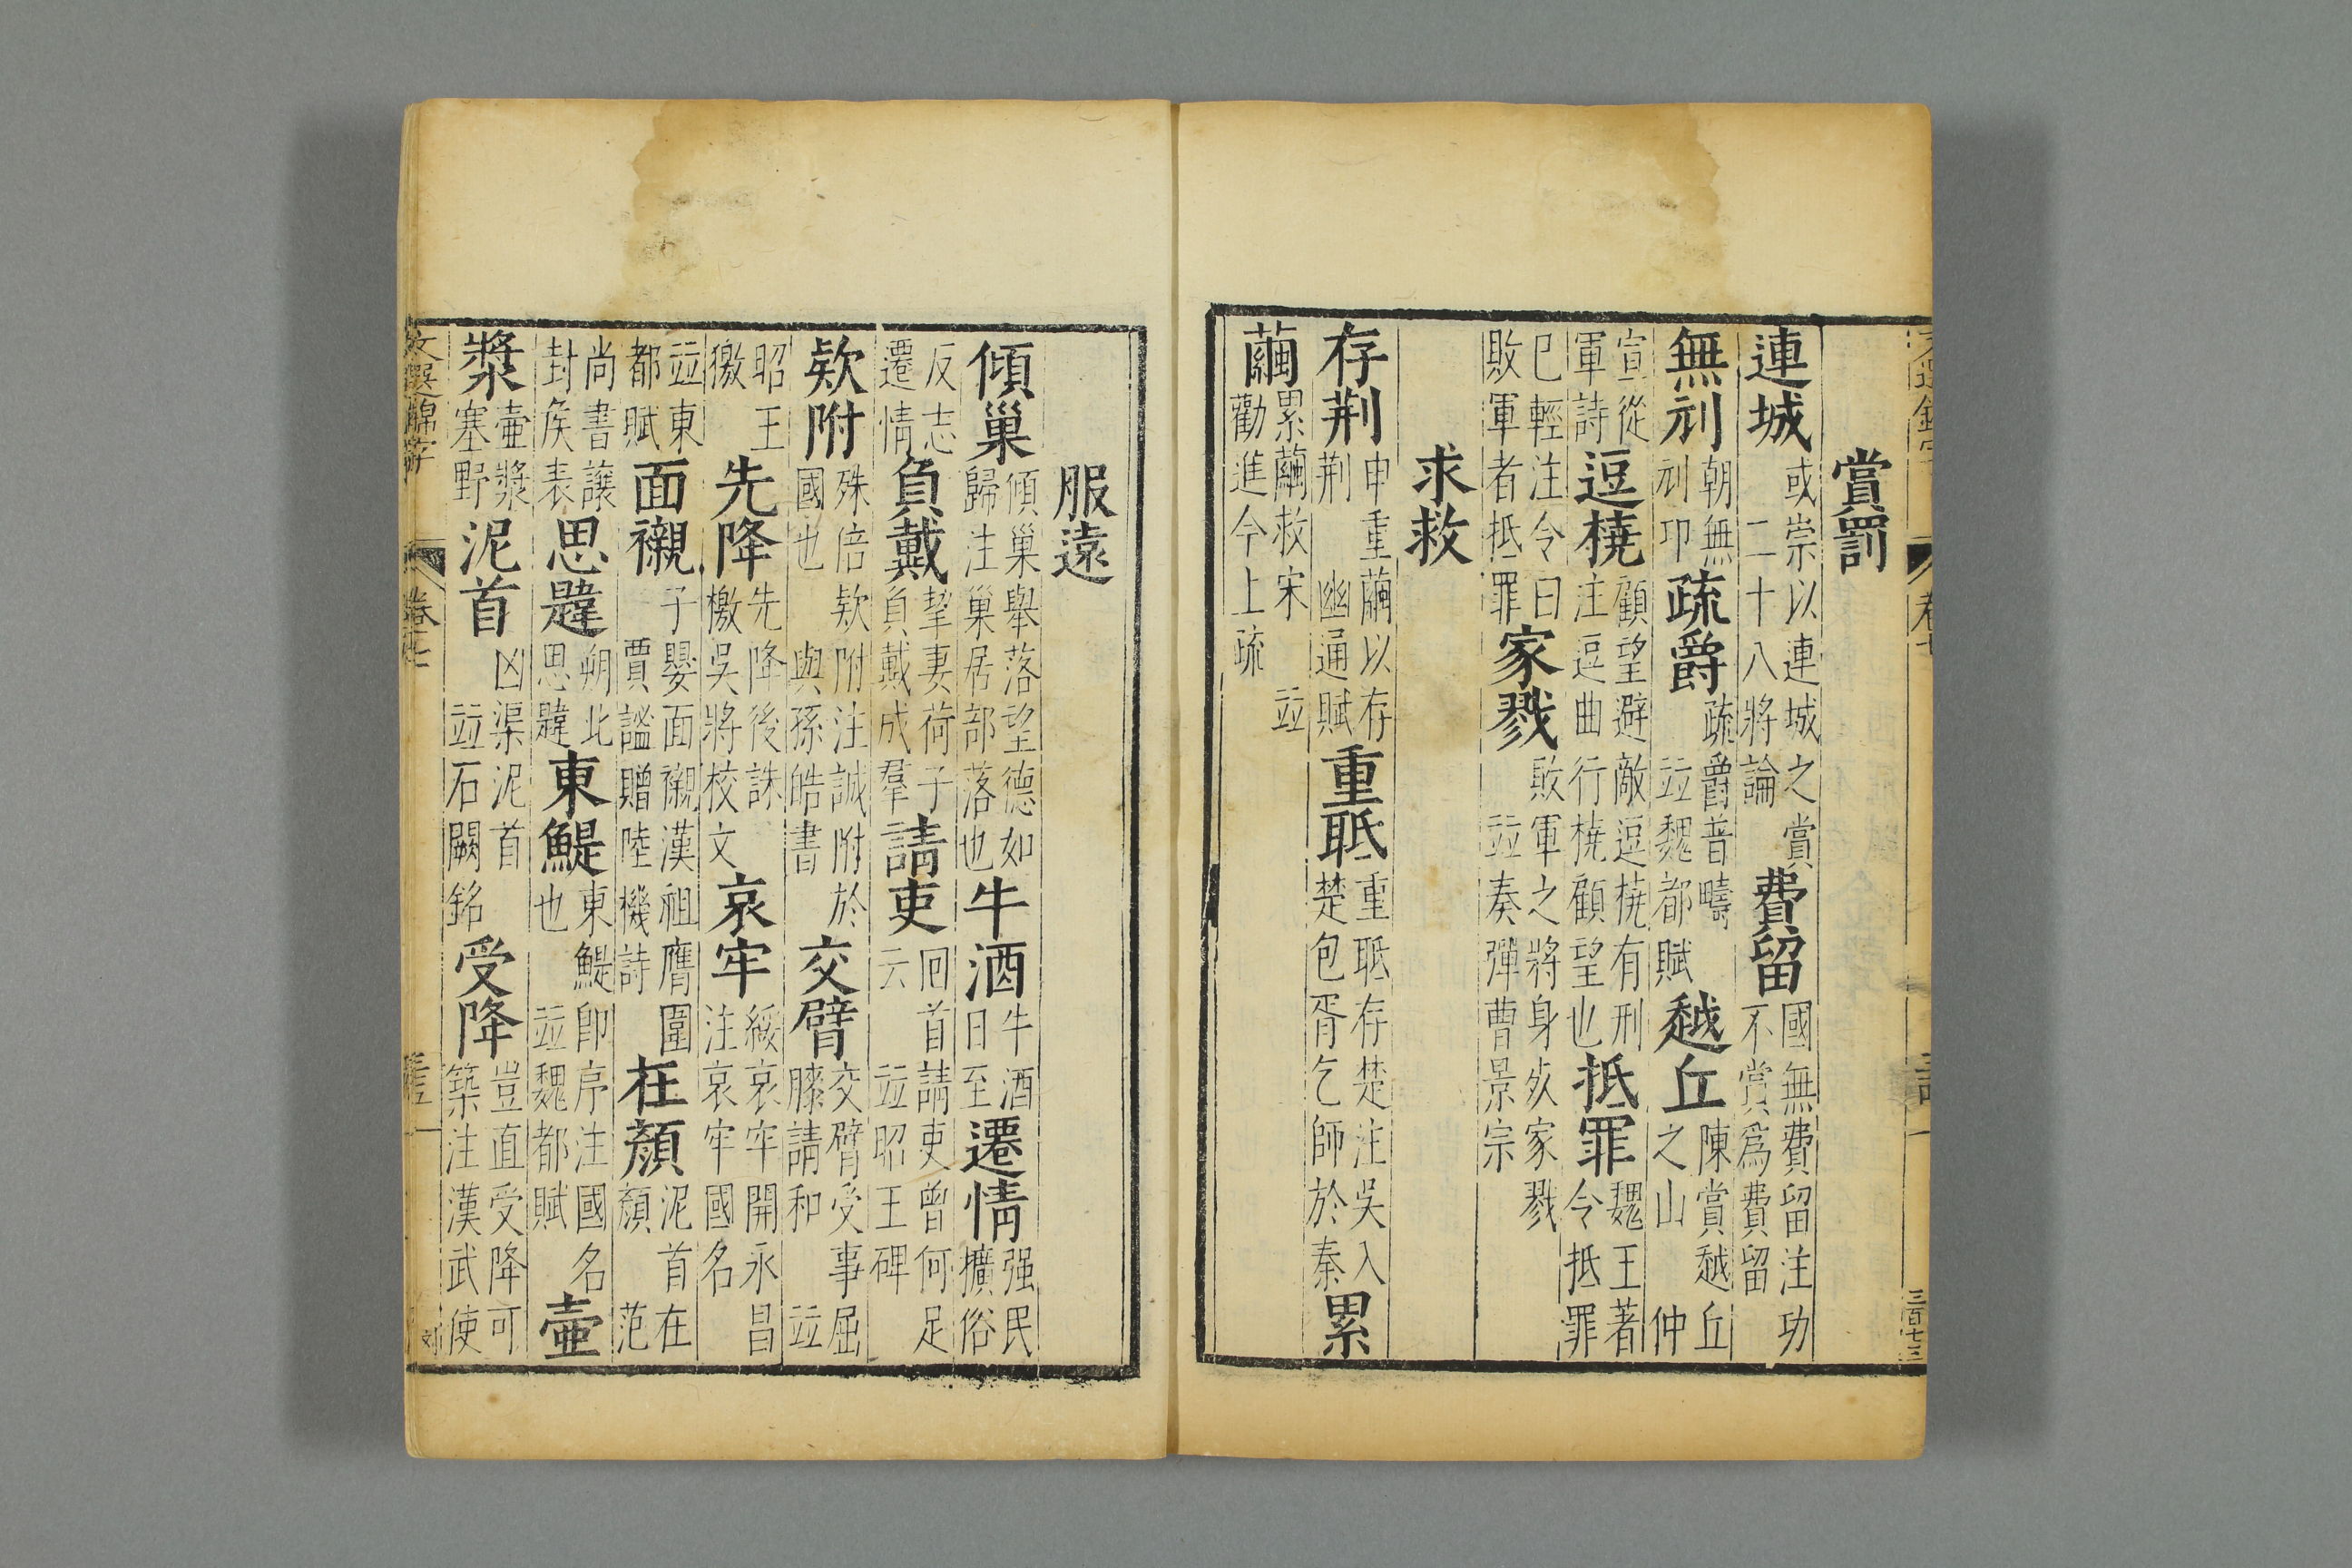 賞罰
連城 或崇以連城之賞 二十八將論 費留 國無費留注功不賞爲費留
無刓 朝無刓印 疏爵 疏爵普疇 竝魏都賦 越丘 陳賞越丘之山 仲
宣從軍詩 逗橈 顧望避敵逗橈有刑注逗曲行橈顧望也 抵罪 魏王著令抵罪
已輕注令曰敗軍者抵罪 家戮 敗軍之將身死家戮 竝奏彈曹景宗
求救
存荆 申重繭以存荆 幽通賦 重胝 重胝存楚注吳入楚包胥乞師於秦 累
繭 累繭救宋 竝勸進今上疏
服遠
傾巢 傾巢舉落望德如歸注巢居部落也 牛酒 牛酒日至 遷情 强民擴俗
反志遷情 負戴 挈妻荷子負戴成羣 請吏 回首請吏曾何足云 竝昭王碑
欵附 殊倍欵附注誠附於國也 與孫皓書 交臂 交臂受事屈膝請和 竝
昭王 檄 先降 先降後誅 檄吳將校文 哀牢 綏哀牢開永昌注哀牢國名
竝東都賦 面襯 子嬰面襯漢祖膺圖 賈謐贈陸機詩 在顔 泥首在顔 范
尚書讓封侯表 思韙 朔北思韙 東鯷 東鯷即序注國名也 竝魏都賦 壺
漿 壺漿塞野 泥首 凶渠泥首 竝石闕銘 受降 豈直受降可築注漢武使
文選錦字 卷十七
三百七十三